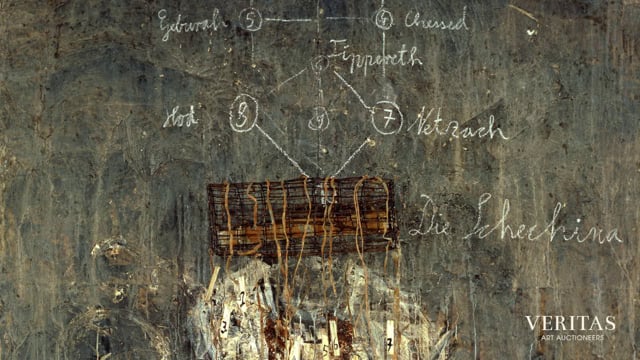 Geburah 5 4 Chessed
6 Tippereth
Hod 8 9 7 Netzach
10
Die Schechina
3
7
5
7
VERITAS
ART AUCTIONEERS